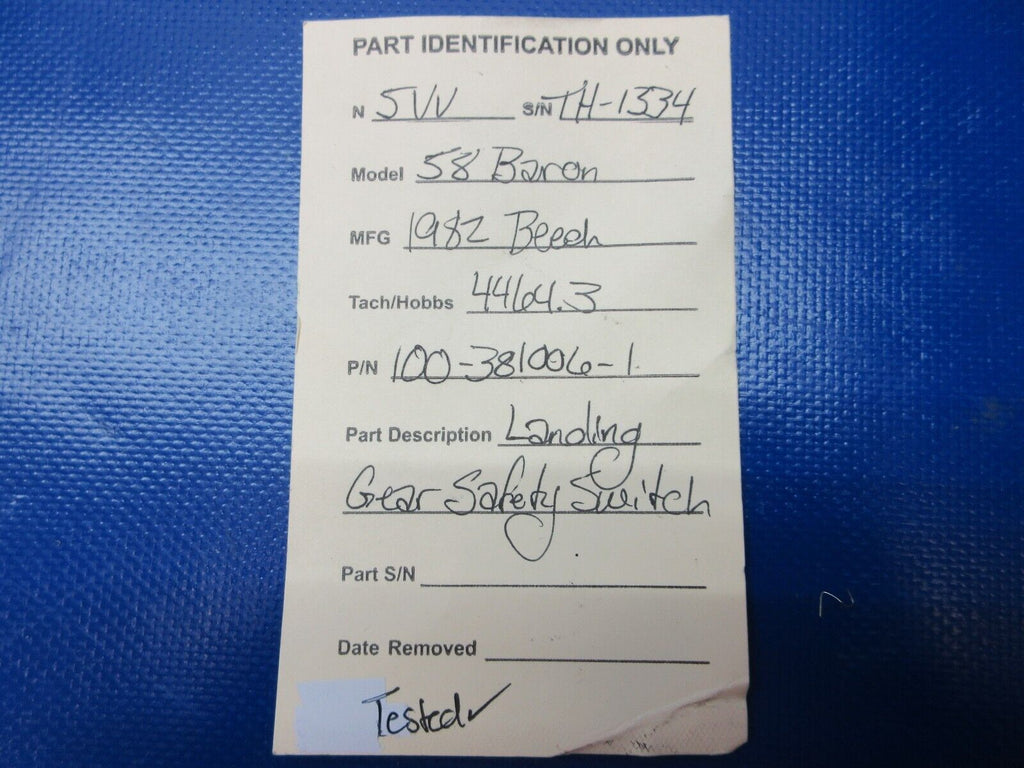 PART IDENTIFICATION ONLY
N 5VV S/N TH-1334
Model 58 Baron
MFG 1982 Beech
Tach/Hobbs 4464.3
P/N 100-381006-1
Part Description Landing
Gear Safety Switch
Part S/N
Date Removed
Tested✓